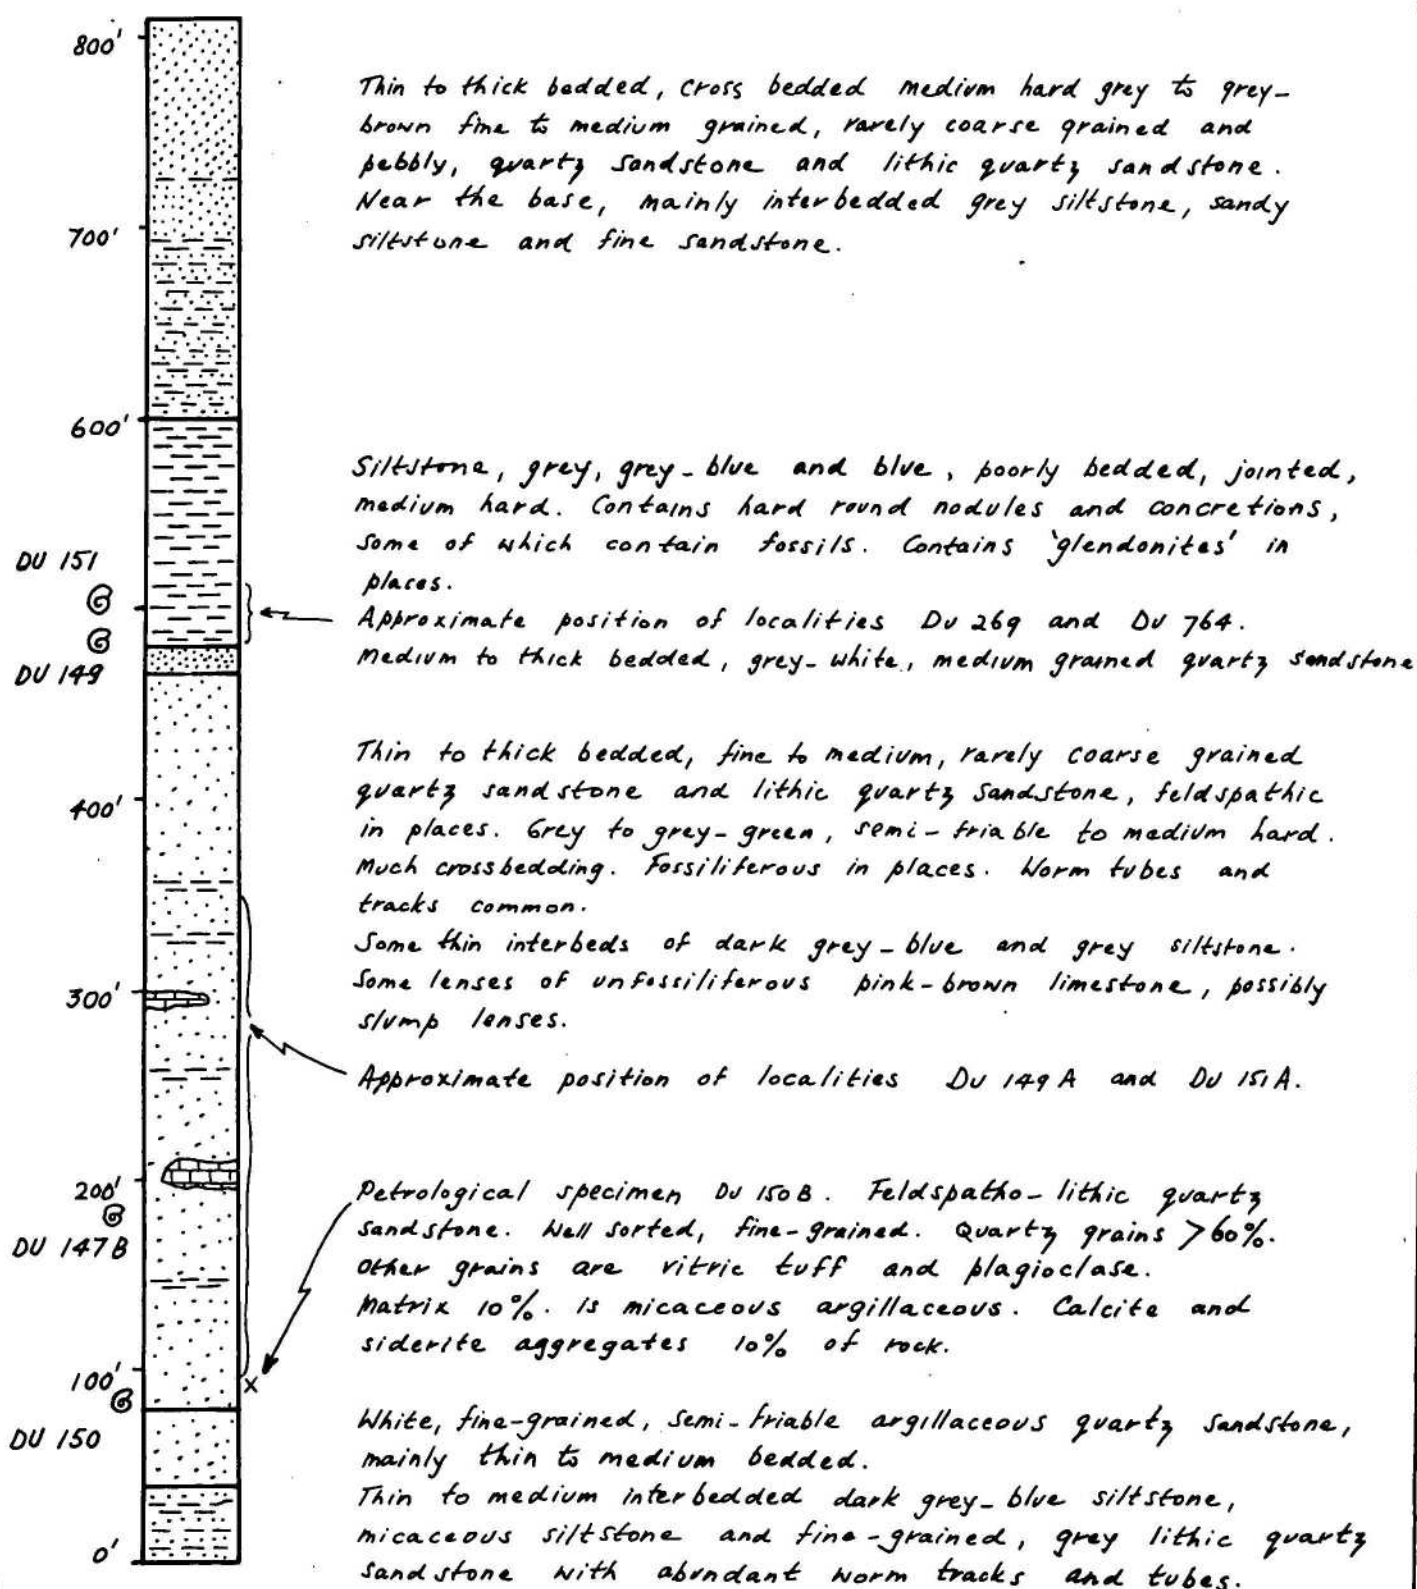 800'
Thin to thick bedded, cross bedded medium hard grey to grey-
brown fine to medium grained, rarely coarse grained and
pebbly, quartz sandstone and lithic quartz sandstone.
Near the base, mainly interbedded grey siltstone, sandy
700'
siltstone and fine sandstone.
600'
Siltstone, grey, grey-blue and blue, poorly bedded, jointed,
medium hard. Contains hard round nodules and concretions,
some of which contain fossils. Contains 'glendonites' in
DU 151
places.
Approximate position of localities Du 269 and Du 764.
Medium to thick bedded, grey-white, medium grained quartz sandstone
DU 149
Thin to thick bedded, fine to medium, rarely coarse grained
400'
quartz sandstone and lithic quartz sandstone, feldspathic
in places. Grey to grey-green, semi-friable to medium hard.
Much crossbedding. Fossiliferous in places. Worm tubes and
tracks common.
Some thin interbeds of dark grey-blue and grey siltstone.
300'
Some lenses of unfossiliferous pink-brown limestone, possibly
slump lenses.
Approximate position of localities Du 149A and Du 151A.
200'
Petrological specimen Du 150B. Feldspatho-lithic quartz
sandstone. Well sorted, fine-grained. Quartz grains >60%.
DU 147B
Other grains are vitric tuff and plagioclase.
Matrix 10%. is micaceous argillaceous. Calcite and
siderite aggregates 10% of rock.
100'
x
White, fine-grained, semi-friable argillaceous quartz sandstone,
DU 150
mainly thin to medium bedded.
Thin to medium interbedded dark grey-blue siltstone,
micaceous siltstone and fine-grained, grey lithic quartz
0'
sandstone with abundant worm tracks and tubes.